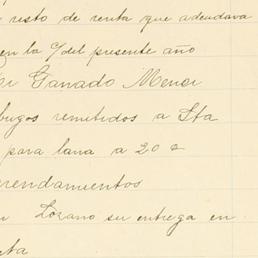 resto de renta que adeudava
en la c/ del presente año
Ganado Menor
bugos remitidos a Sta
para lana a 20 c
rrendamientos
Lozano su entrega en
ta